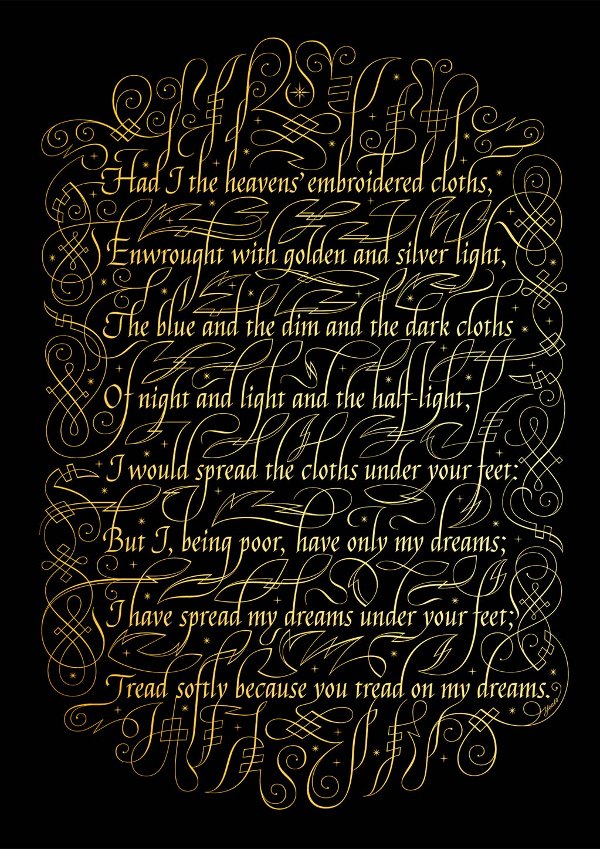 Had I the heavens’ embroidered cloths,
Enwrought with golden and silver light,
The blue and the dim and the dark cloths
Of night and light and the half-light,
I would spread the cloths under your feet:
But I, being poor, have only my dreams;
I have spread my dreams under your feet;
Tread softly because you tread on my dreams.
Yeats